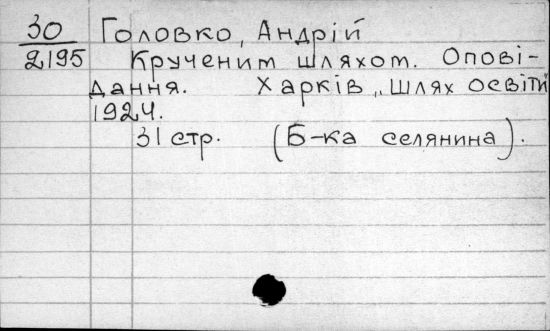 30 Головко, Андрій
2195 Крученим шляхом. Опові-
дання. Харків „Шлях освіти
1924.
31 стр. (Б-ка селянина).